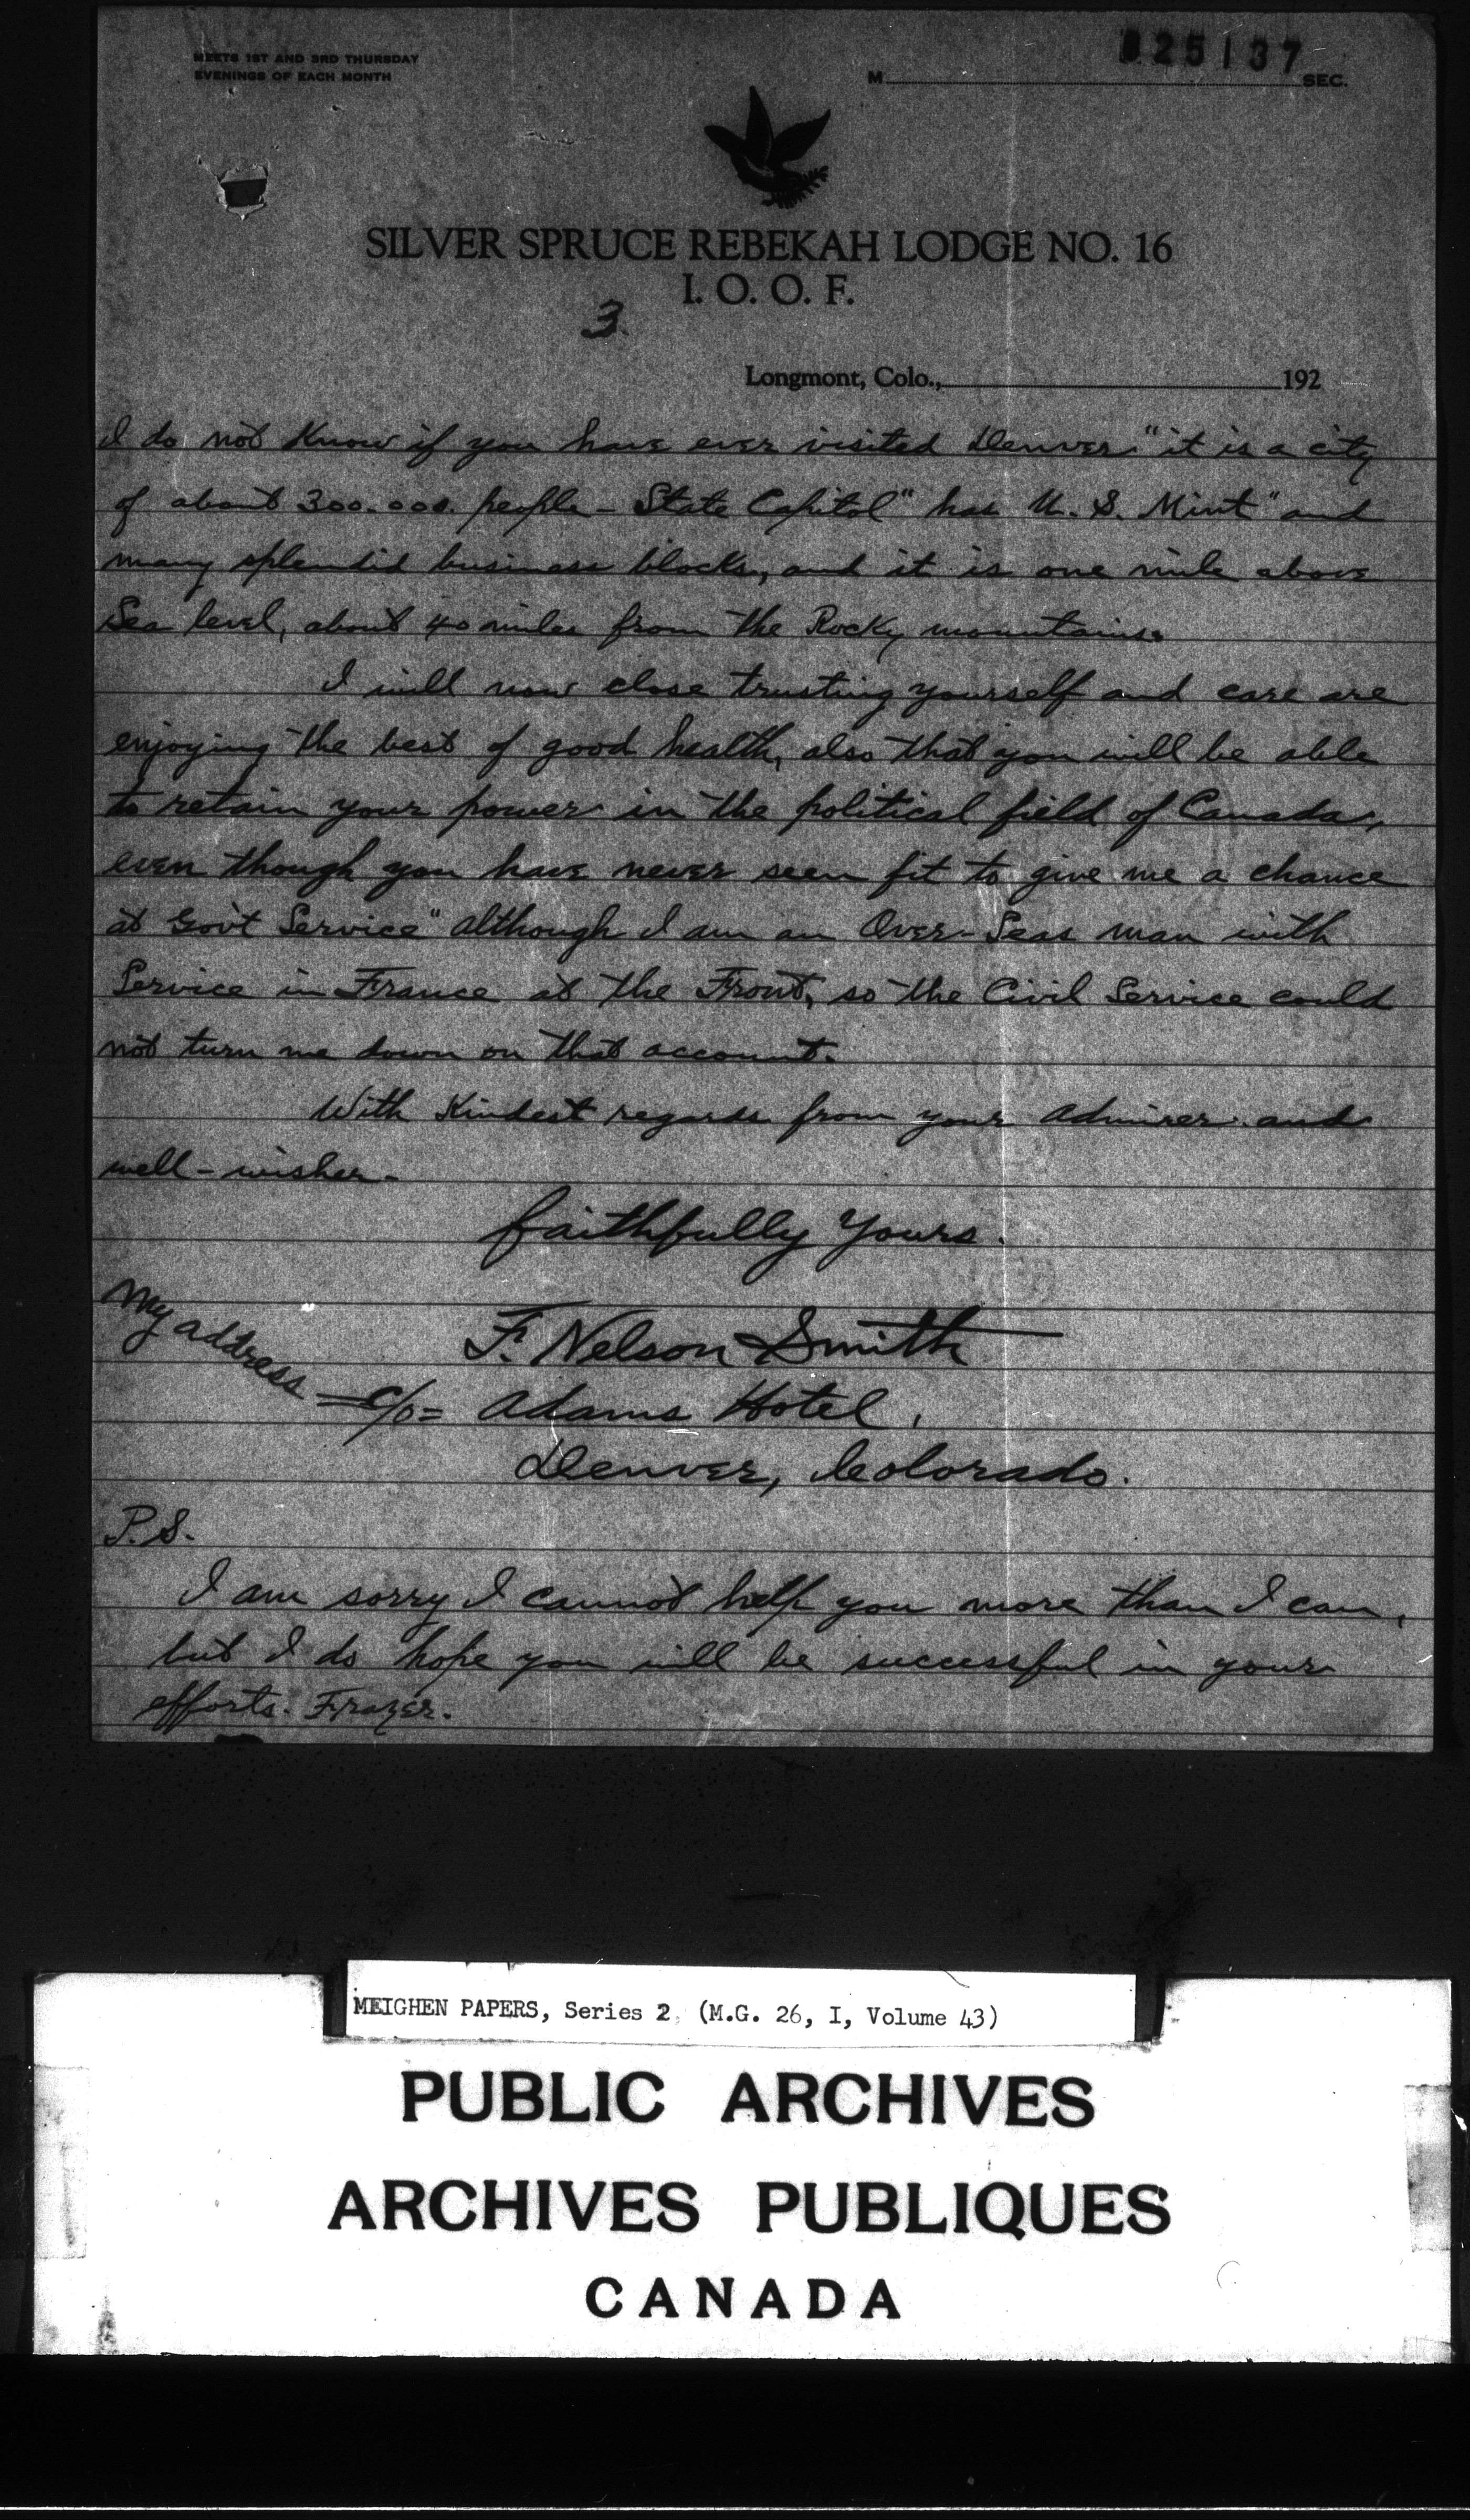 MEETS 1ST AND 3RD THURSDAY
EVENINGS OF EACH MONTH
025137
M SEC.
SILVER SPRUCE REBEKAH LODGE NO. 16
I. O. O. F.
3.
Longmont, Colo., 192
I do not know if you have ever visited Denver "it is a city
of about 300.000. people - State Capitol" has U. S. Mint" and
many splendid business blocks, and it is one mile above
Sea level, about 40 miles from the Rocky mountains.
I will now close trusting yourself and care are
enjoying the best of good health, also that you will be able
to retain your power in the political field of Canada,
even though you have never seen fit to give me a chance
at Gov't Service" although I am an Over-Seas man with
Service in France at the Front, so the Civil Service could
not turn me down on that account.
With Kindest regards from your admirer and
well-wisher-
faithfully Yours.
F. Nelson Smith
My address - c/o = Adams Hotel,
Denver, Colorado.
P.S.
I am sorry I cannot help you more than I can,
but I do hope you will be successful in your
efforts. Frazer.
MEIGHEN PAPERS, Series 2 (M.G. 26, I, Volume 43)
PUBLIC ARCHIVES
ARCHIVES PUBLIQUES
CANADA